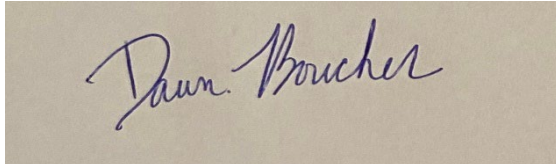 Dawn. Boucher